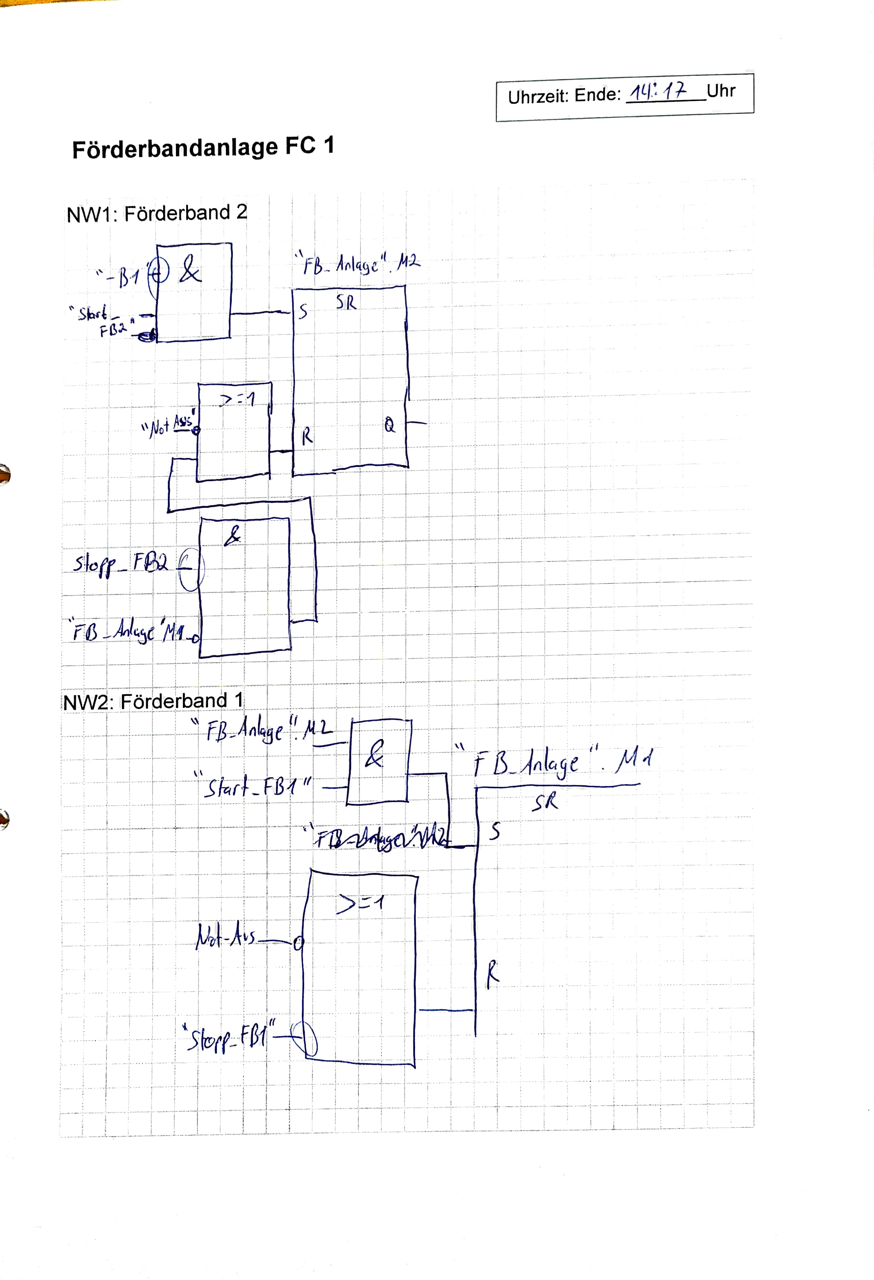 Uhrzeit: Ende: 14:17 Uhr
Förderbandanlage FC 1
NW1: Förderband 2
"-B1" &
"FB_Anlage".M2
"Start_
FB2"
S SR
>=1
"Not Aus"
R Q
&
Stopp_FB2
"FB_Anlage"M1
NW2: Förderband 1
"FB_Anlage".M2
&
"FB_Anlage".M1
"Start_FB1"
SR
S
>=1
Not-Aus
R
"Stopp_FB1"